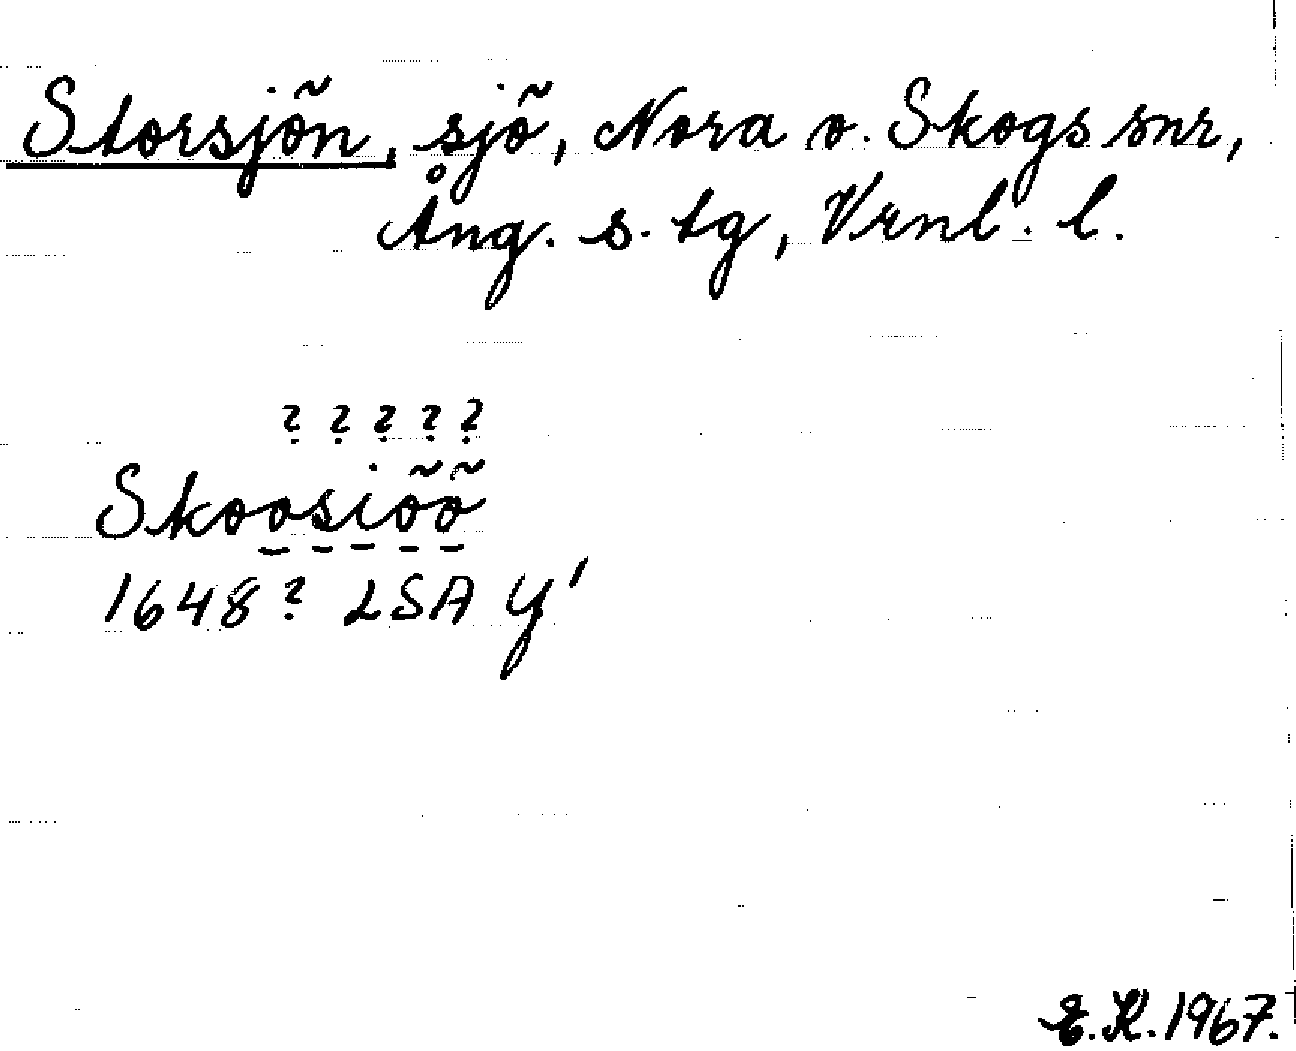 Storsjön, sjö, Nora o. Skogs snr,
Ång. s. tg, Vrml. l.
? ? ? ? ?
Skoosiöö
1648? LSA Y¹
E.K. 1967.